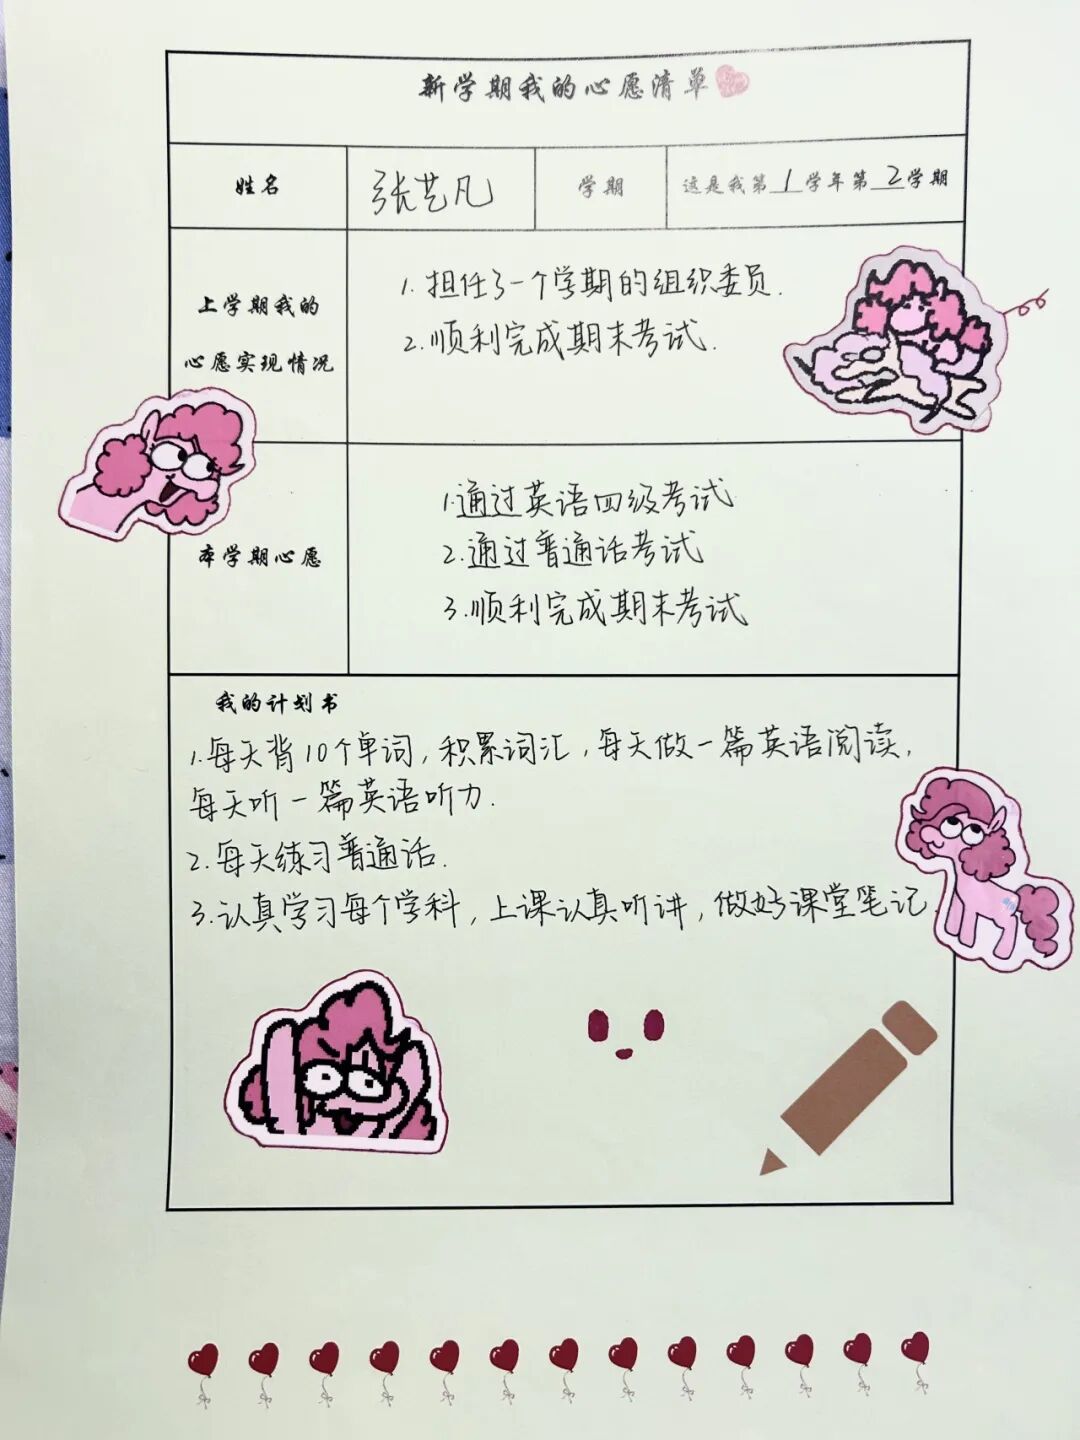 新学期我的心愿清单
姓名 张艺凡 学期 这是我第1学年第2学期
上学期我的
心愿实现情况
1.担任了一个学期的组织委员.
2.顺利完成期末考试.
本学期心愿
1.通过英语四级考试
2.通过普通话考试
3.顺利完成期末考试
我的计划书
1.每天背10个单词,积累词汇,每天做一篇英语阅读,
每天听一篇英语听力.
2.每天练习普通话.
3.认真学习每个学科,上课认真听讲,做好课堂笔记.